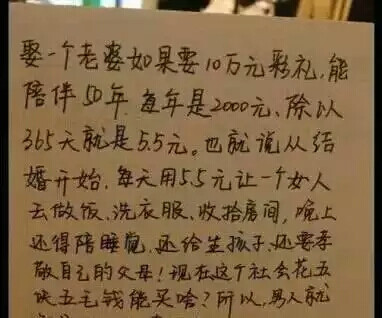 娶一个老婆如果要10万元彩礼,能
陪伴50年.每年是2000元、除以
365天就是5.5元。也就说从结
婚开始.每天用5.5元让一个女人
去做饭、洗衣服、收拾房间,晚上
还得陪睡觉.还给生孩子.还要孝
敬自己的父母!现在这个社会花五
块五毛钱能买啥?所以,男人就